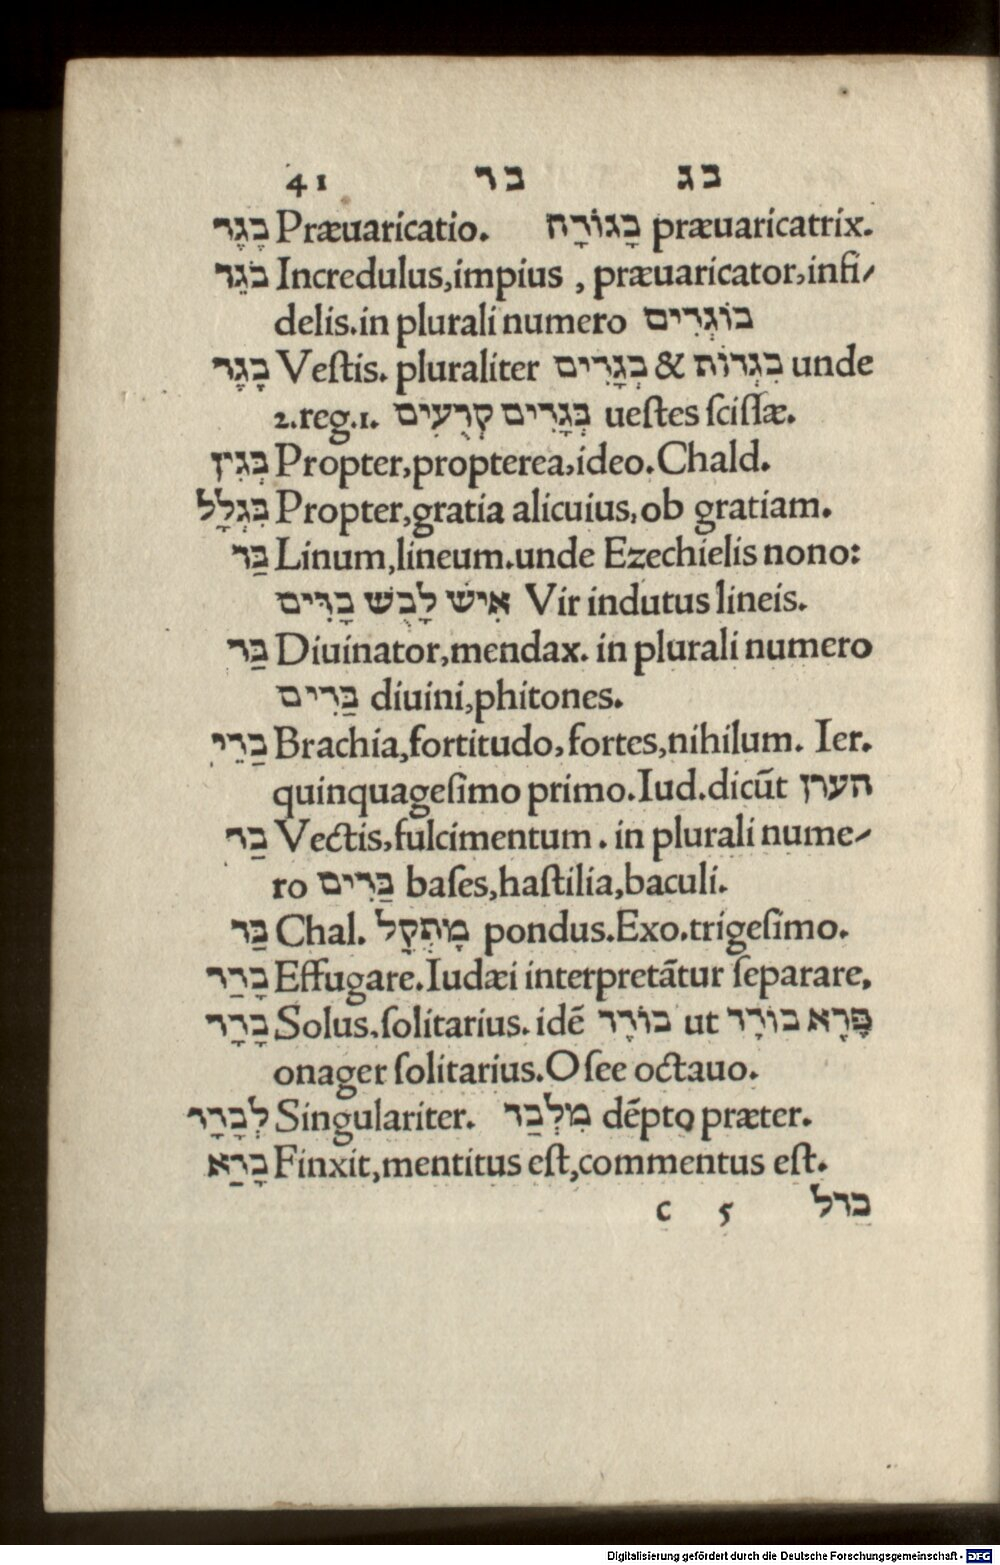 41 בד בג
בֶגֶד Præuaricatio. בָגוֹדָה præuaricatrix.
בֹגֵד Incredulus,impius , præuaricator,infi/
delis.in plurali numero בוֹגְדִים
בָגֶד Veſtis. pluraliter בְגָדִים & בִגְדוֹת unde
2.reg.1. בְּגָדִים קְרֻעִים ueſtes ſciſſæ.
בְּגִין Propter,propterea,ideo.Chald.
בִּגְלָל Propter,gratia alicuius,ob gratiam.
בַּד Linum,lineum.unde Ezechielis nono:
אִישׁ לָבֻשׁ בָּדִּים Vir indutus lineis.
בַּד Diuinator,mendax. in plurali numero
בַּדִים diuini,phitones.
בַּדֵּי Brachia,fortitudo,fortes,nihilum. Ier.
quinquageſimo primo.Iud.dicũt הערן
בַּד Vectis,fulcimentum . in plurali nume/
ro בַּדִּים baſes,haſtilia,baculi.
בַּד Chal. מָתְקָל pondus.Exo.trigeſimo.
בָּדַד Effugare.Iudæi interpretãtur ſeparare,
בָּדָד Solus,ſolitarius. idẽ בּוֹדֶד ut פֶּרֶא בוֹדָד
onager ſolitarius.Oſee octauo.
לְבָדָד Singulariter. מִלְבַד dẽpto præter.
בָּדַא Finxit,mentitus eſt,commentus eſt.
c 5 בדל